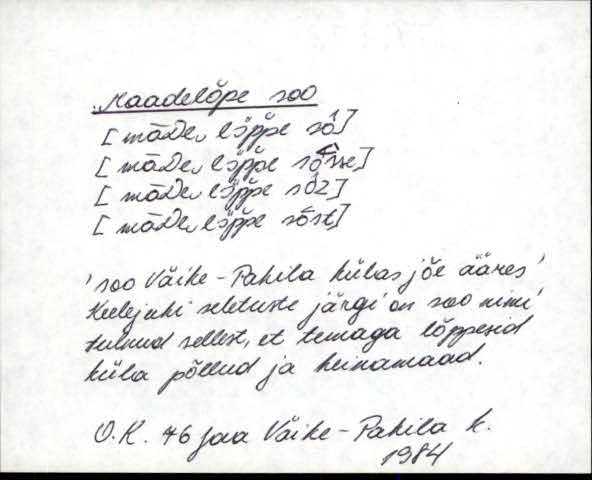 Maadelõpe soo
[māDe͔ lȫppe sō]
[māDe͔ lȫppe sōsse]
[māDe͔ lȫppe sōz]
[māDe͔ lȫppe sōst]
'soo Väike-Pahila külas jõe ääres'
Keelejuhi seletuste järgi on soo nimi
tulnud sellest, et temaga lõppesid
küla põllud ja heinamaad.
O.K. 76 jaa Väike-Pahila k.
1984